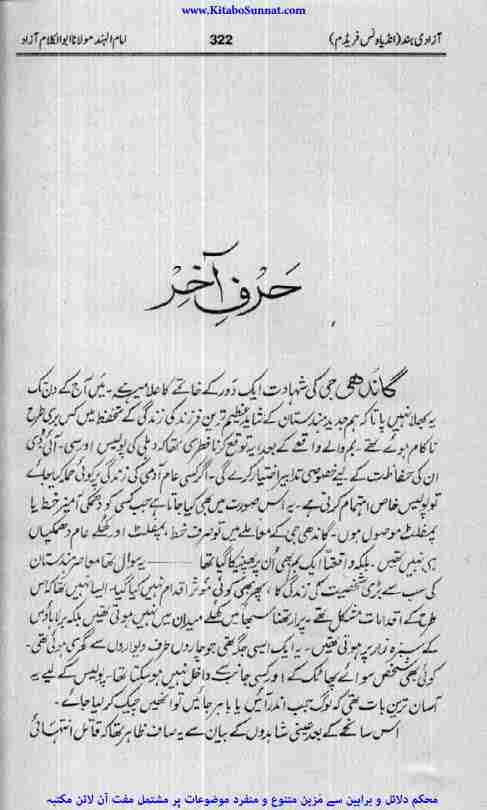 www.KitaboSunnat.com
آزادی ہند (انڈیا ونس فریڈم) 322 امام الہند مولانا ابوالکلام آزاد
حَرفِ آخِر
گاندھی جی کی شہادت ایک دَور کے خاتمے کا علامیہ ہے۔ میں آج کے دن تک
یہ بھلا نہیں پاتا کہ ہم جدید ہندستان کے شاید عظیم ترین فرزند کی زندگی کے تحفظ میں کس بری طرح
ناکام ہوئے تھے۔ بم والے واقعے کے بعد یہ توقع کرنا فطری تھا کہ دہلی کی پولیس اور سی۔ آئی۔ ڈی
ان کی حفاظت کے لیے خصوصی تدابیر اختیار کرے گی۔ اگر کسی عام آدمی کی زندگی پر کوئی حملہ کیا جائے
تو پولیس خاص اہتمام کرتی ہے۔ یہ اس صورت میں بھی کیا جاتا ہے جب کسی کو دھمکی آمیز خط یا
پمفلٹ موصول ہوں۔ گاندھی جی کے معاملے میں تو صرف خط، پمفلٹ اور کھلے عام دھمکیاں
ہی نہیں تھیں۔ بلکہ واقعتاً ایک بم بھی اُن پر پھینکا گیا تھا ——— یہ سوال تھا معاصر ہندستان
کی سب سے بڑی شخصیت کی زندگی کا، پھر بھی کوئی مؤثر اقدام نہیں کیا گیا۔ ایسا نہیں تھا کہ اس
طرح کے اقدامات مشکل تھے۔ پرارتھنا سبھا میں کھلے میدان میں نہیں ہوتی تھیں بلکہ برلا ہاؤس
کے سبزہ زار پر ہوتی تھیں۔ یہ ایک ایسی جگہ تھی جو چاروں طرف دیواروں سے گھری ہوئی تھی۔
کوئی بھی شخص سوائے پھاٹک کے اور کسی جانب سے داخل نہیں ہو سکتا تھا۔ پولیس کے لیے یہ
آسان ترین بات تھی کہ لوگ جب اندر آئیں یا باہر جائیں تو انھیں چیک کر لیا جائے۔
اس سانحے کے بعد عینی شاہدوں کے بیان سے یہ صاف ظاہر تھا کہ قاتل انتہائی
محکم دلائل و براہین سے مزین متنوع و منفرد موضوعات پر مشتمل مفت آن لائن مکتبہ